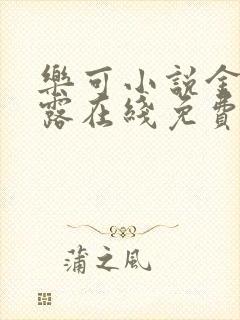 樂可小説金
露在綫免費
蒲之風